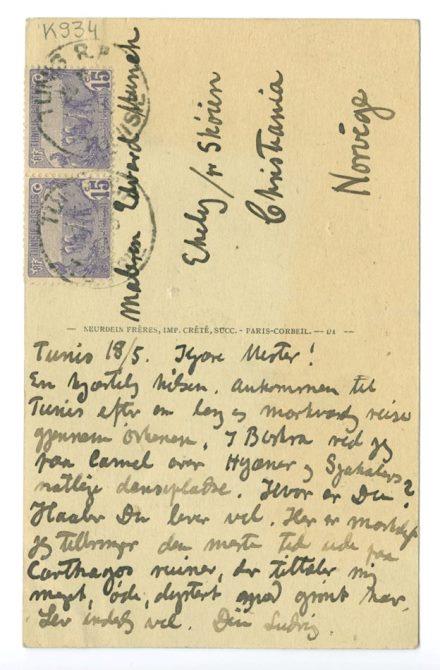 K934
TUNISIE POSTES 15
TUNISIE POSTES 15
TUNIS R.P.
Maleren Edvard Munch
Ekely / pr Skøien
Christiania
Norvège
— NEURDEIN FRÈRES, IMP. CRÉTÉ, SUCC. - PARIS-CORBEIL. —
Tunis 18/5. Kjære Mester!
En hjertelig hilsen. Ankommen til
Tunis efter en lang og morkværdig reise
gjennem ørkenen. I Biskra red jeg
paa Camel over Hyæner og Sjakalers
natlige danseplads. Hvor er Du?
Haaber Du lever vel. Her er
jeg tilbringer den meste tid ude paa
Carthagos ruiner, der tiltaler mig
meget, øde, dystert med grønt hav.
Lev inderlig vel. Din Ludvig.